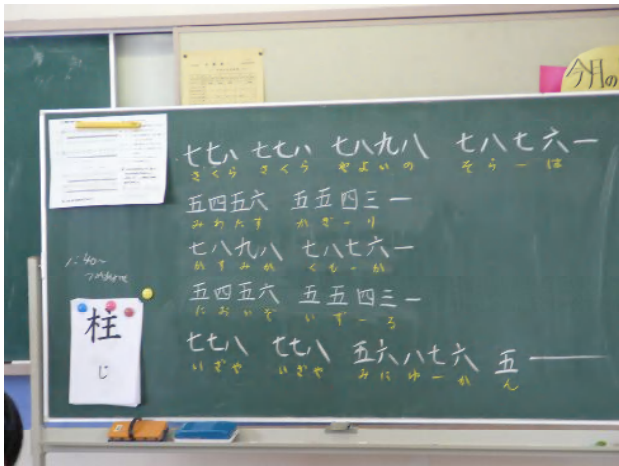 今月の
七七八 七七八 七八九八 七八七六一
さくら さくら やよいの そらーは
五四五六 五五四三一
みわたす かぎーり
七八九八 七八七六一
かすみか くもーか
五四五六 五五四三一
においぞ いずーる
七七八 七七八 五六八七六 五――
いざや いざや みにゆーか ん
柱
じ